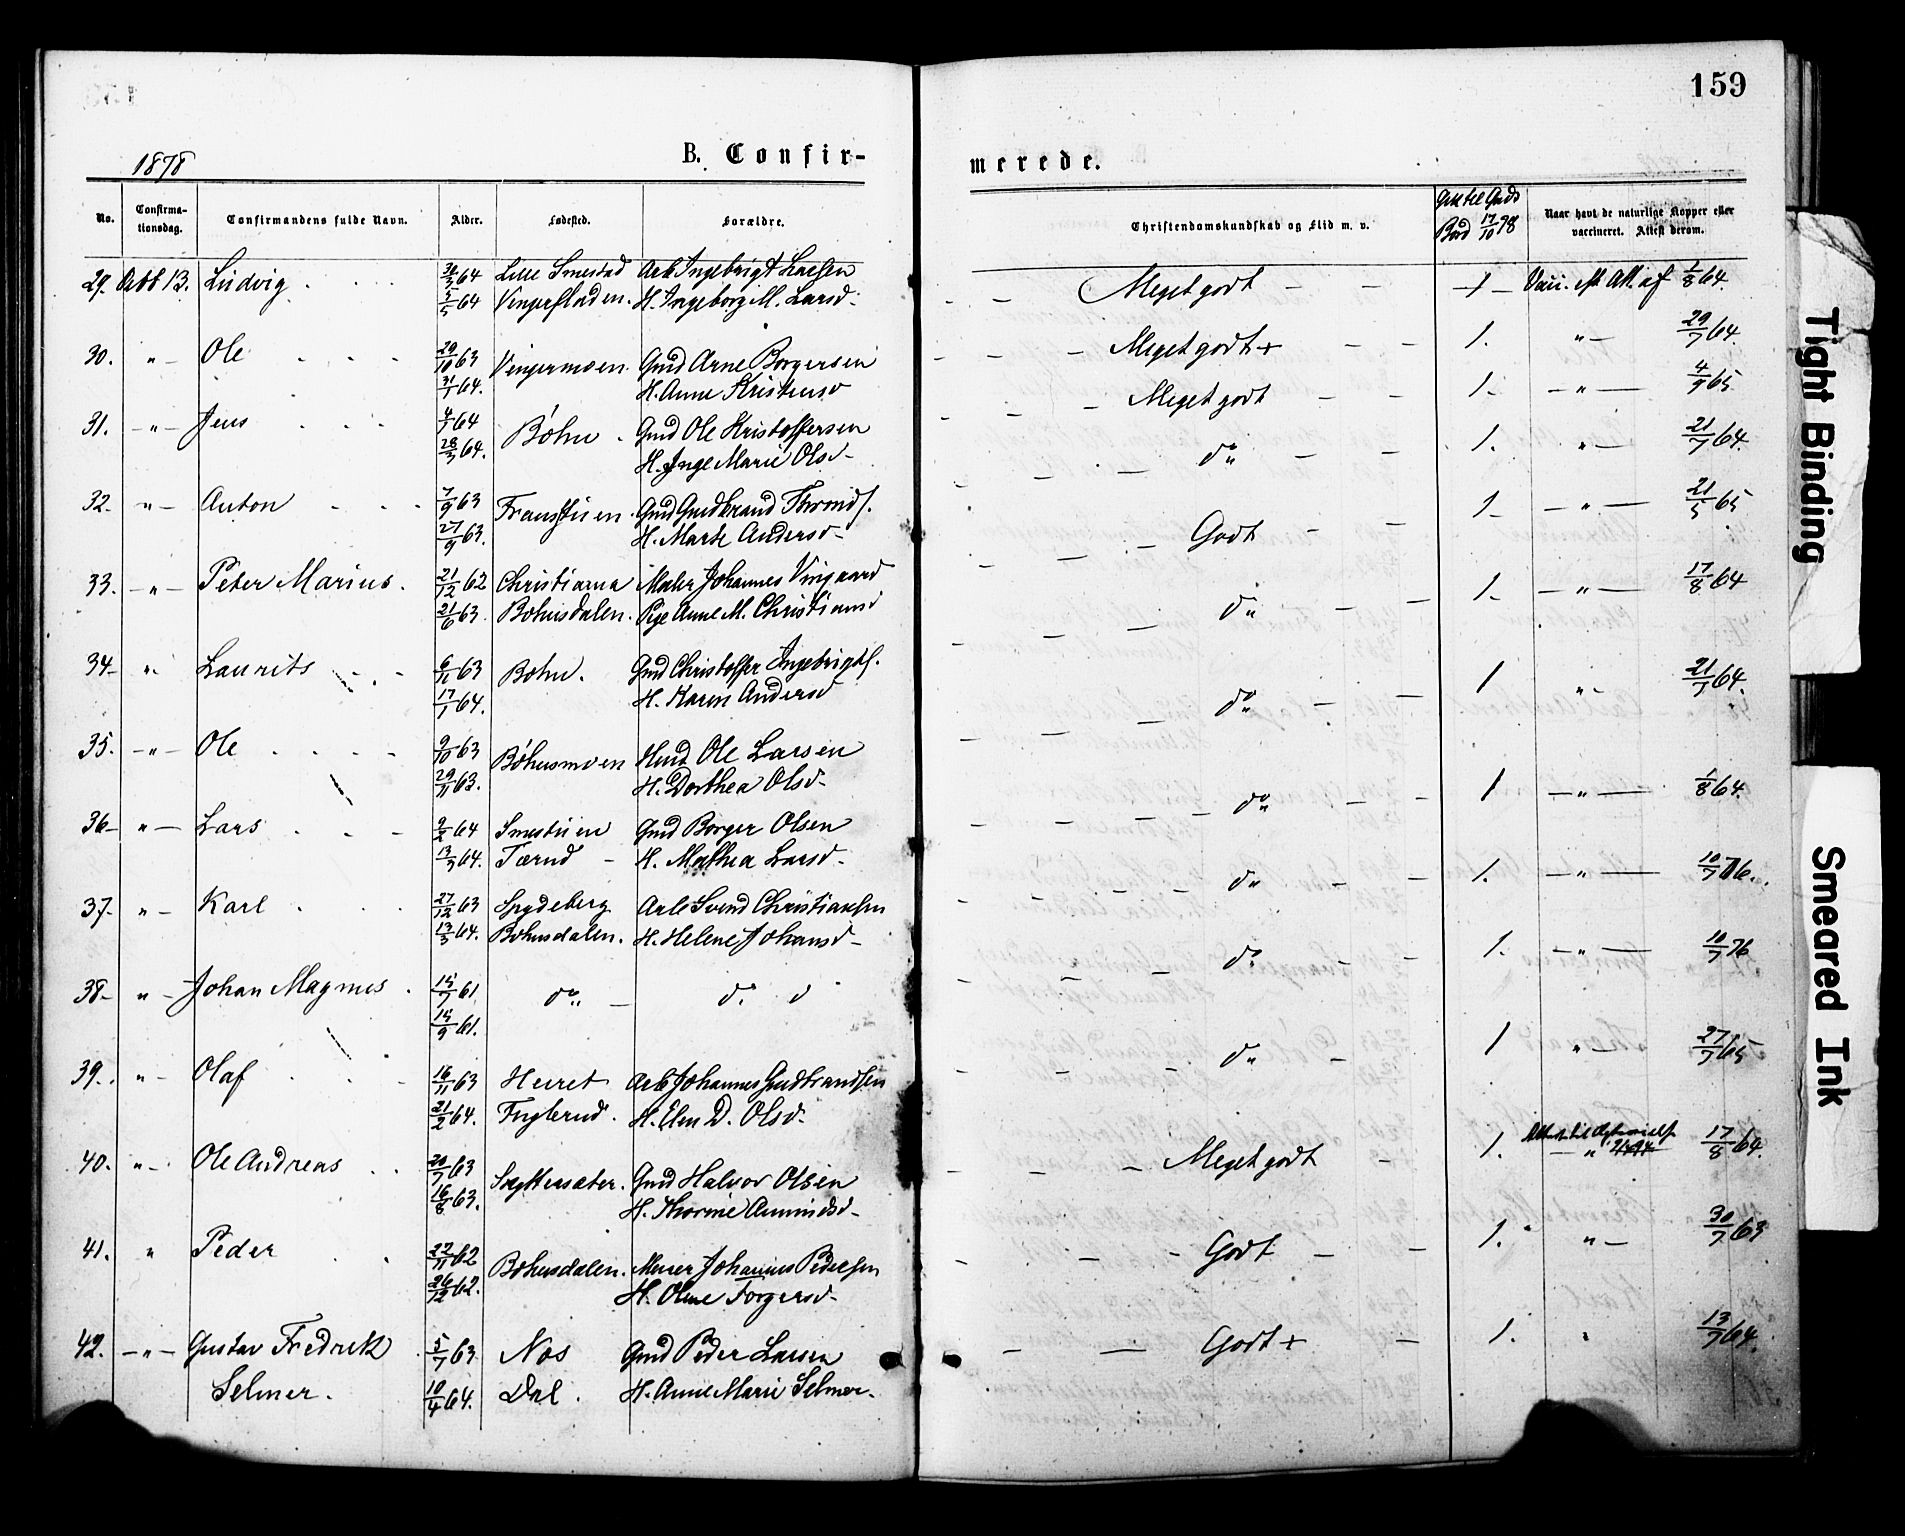 159
1878
B. Confir-
merede.
No.
Confirma-
tionsdag.
Confirmandens fulde Navn.
Alder.
Fødested.
Forældre.
Christendomskundskab og Flid m. v.
Gik til Guds
Bord 17/10 78
Naar havt de naturlige Kopper eller
vaccineret. Attest derom.
29. Octb 13. Ludvig 64 Lille Smestad Arb Ingebrigt Larsen Meget godt 1 Vacc. eft Att. af 1/8 64.
5/5 64 H. Ingeborg M. Larsd.
30. " Ole 29/10 63 Vingermoen Gmd Arne Borgersen Meget godt + 1. " 29/7 64.
31/1 64. H. Anne
31. " Jens 4/1 64 Bøhn. Gmd Ole Kristoffersen Meget godt 1. " 4/9 65
28/3 64. H. Inge Marie Olsd
32. " Anton 7/9 63 Gmd Gudbrand do 1. " 21/7 64.
27/9 63. H. Marte Andersd
33. " Peter Marius. 21/12 62 Christiania Maler Johannes Vingaard Godt 1. " 21/5 65
21/6 63. Bøhnsdalen. Pige Anne M. Christiansd
34 " Laurits 6/11 63 Bøhn. Gmd Christoffer Ingebrigts. do 1. " 17/8 64
17/1 64. H. Karen Andersd
35. " Ole 9/10 63 Bøhnsmoen Hmd Ole Larsen do 1 " 21/7 64.
29/11 63. H. Dorthea Olsd.
36 " Lars 9/2 64 Smestuen Gmd Borger Olsen do 1 " 1/8 64.
13/3 64. Tærud H. Mathea Larsd.
37. " Karl 27/12 63 Spydeberg Arb Svend Christiansen do 1. " 10/7 76.
13/3 64. Bøhnsdalen. H. Helene Johansd
38. " Johan Magnus 15/7 61 do do d 1. " 10/7 76
15/9 61.
39. " Olaf 16/11 63 Arb Johannes Gudbrandsen do 1 " 27/7 65
21/2 64. Fuglerud. H. Elen D. Olsd.
40. " Ole Andreas 20/7 63 Gmd Halvor Olsen Meget godt 1. Attest til " 17/8 64.
16/8 63. H. Thorine Amundsd
41. " Peder 22/11 62 Bøhnsdalen. Johannes Pedersen Godt 1. " 30/7 63
26/12 62. H. Oline Torgersd.
42. " Gustav Fredrik 5/7 63 Nos Gmd Peder Larsen Godt + 1. " 13/7 64.
Selmer. 10/4 64. Dal. H. Anne Marie Selmer.
Tight Binding
Smeared Ink